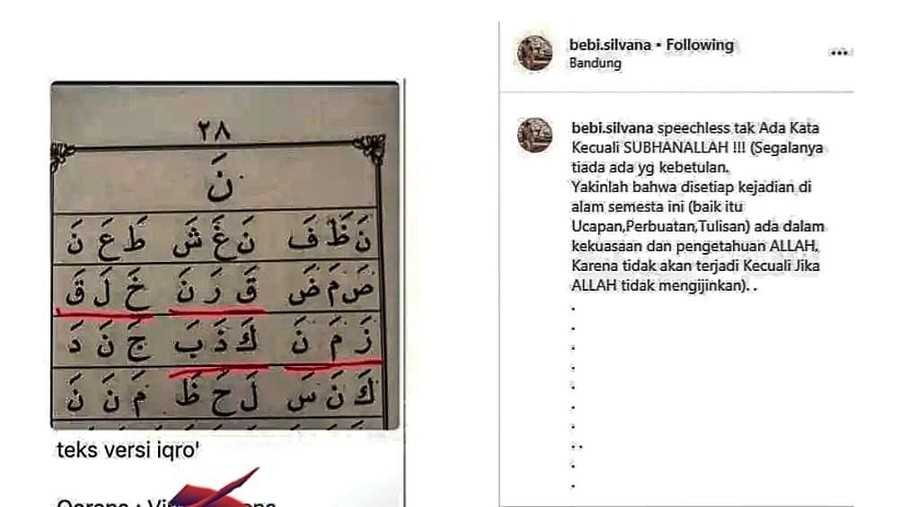 ٢٨
نَ
نَ ظَ فَ نَ غَ شَ طَ عَ نَ
صَ مَ ضَ قَ رَ نَ خَ لَ قَ
زَ مَ نَ كَ ذَ بَ جَ نَ دَ
كَ نَ سَ لَ حَ ظَ مَ نَ نَ
teks versi iqro'
bebi.silvana • Following
Bandung
bebi.silvana speechless tak Ada Kata
Kecuali SUBHANALLAH !!! (Segalanya
tiada ada yg kebetulan.
Yakinlah bahwa disetiap kejadian di
alam semesta ini (baik itu
Ucapan,Perbuatan,Tulisan) ada dalam
kekuasaan dan pengetahuan ALLAH,
Karena tidak akan terjadi Kecuali Jika
ALLAH tidak mengijinkan). .
.
.
.
.
.
.
.
. .
.
.